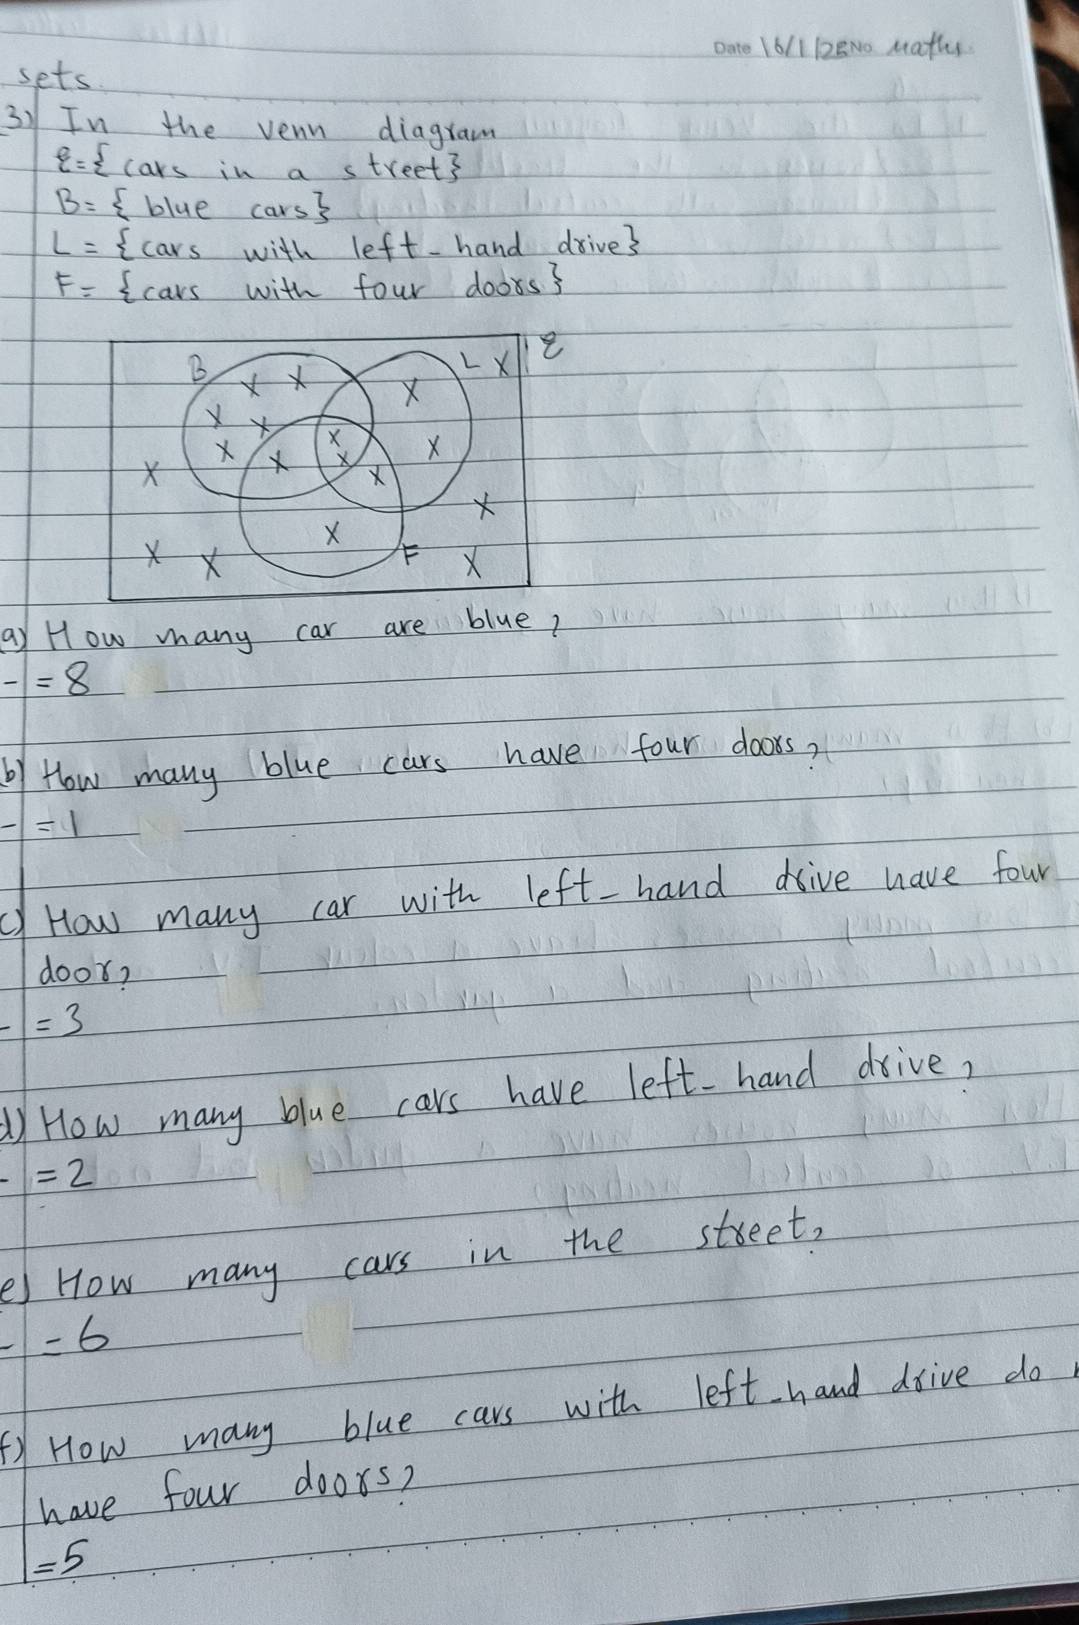 Date 16/1/25 No Maths
sets
3) In the venn diagram
ξ = { cars in a street}
B = { blue cars}
L = {cars with left-hand drive}
F = {cars with four doors}
B L X ξ
X X X
X X X
X X X X
X X X
X X
X X F X
a) How many car are blue?
- = 8
b) How many blue cars have four doors?
- = 1
c) How many car with left-hand drive have four
door?
- = 3
d) How many blue cars have left-hand drive?
- = 2
e) How many cars in the street?
- = 6
f) How many blue cars with left-hand drive do
have four doors?
= 5